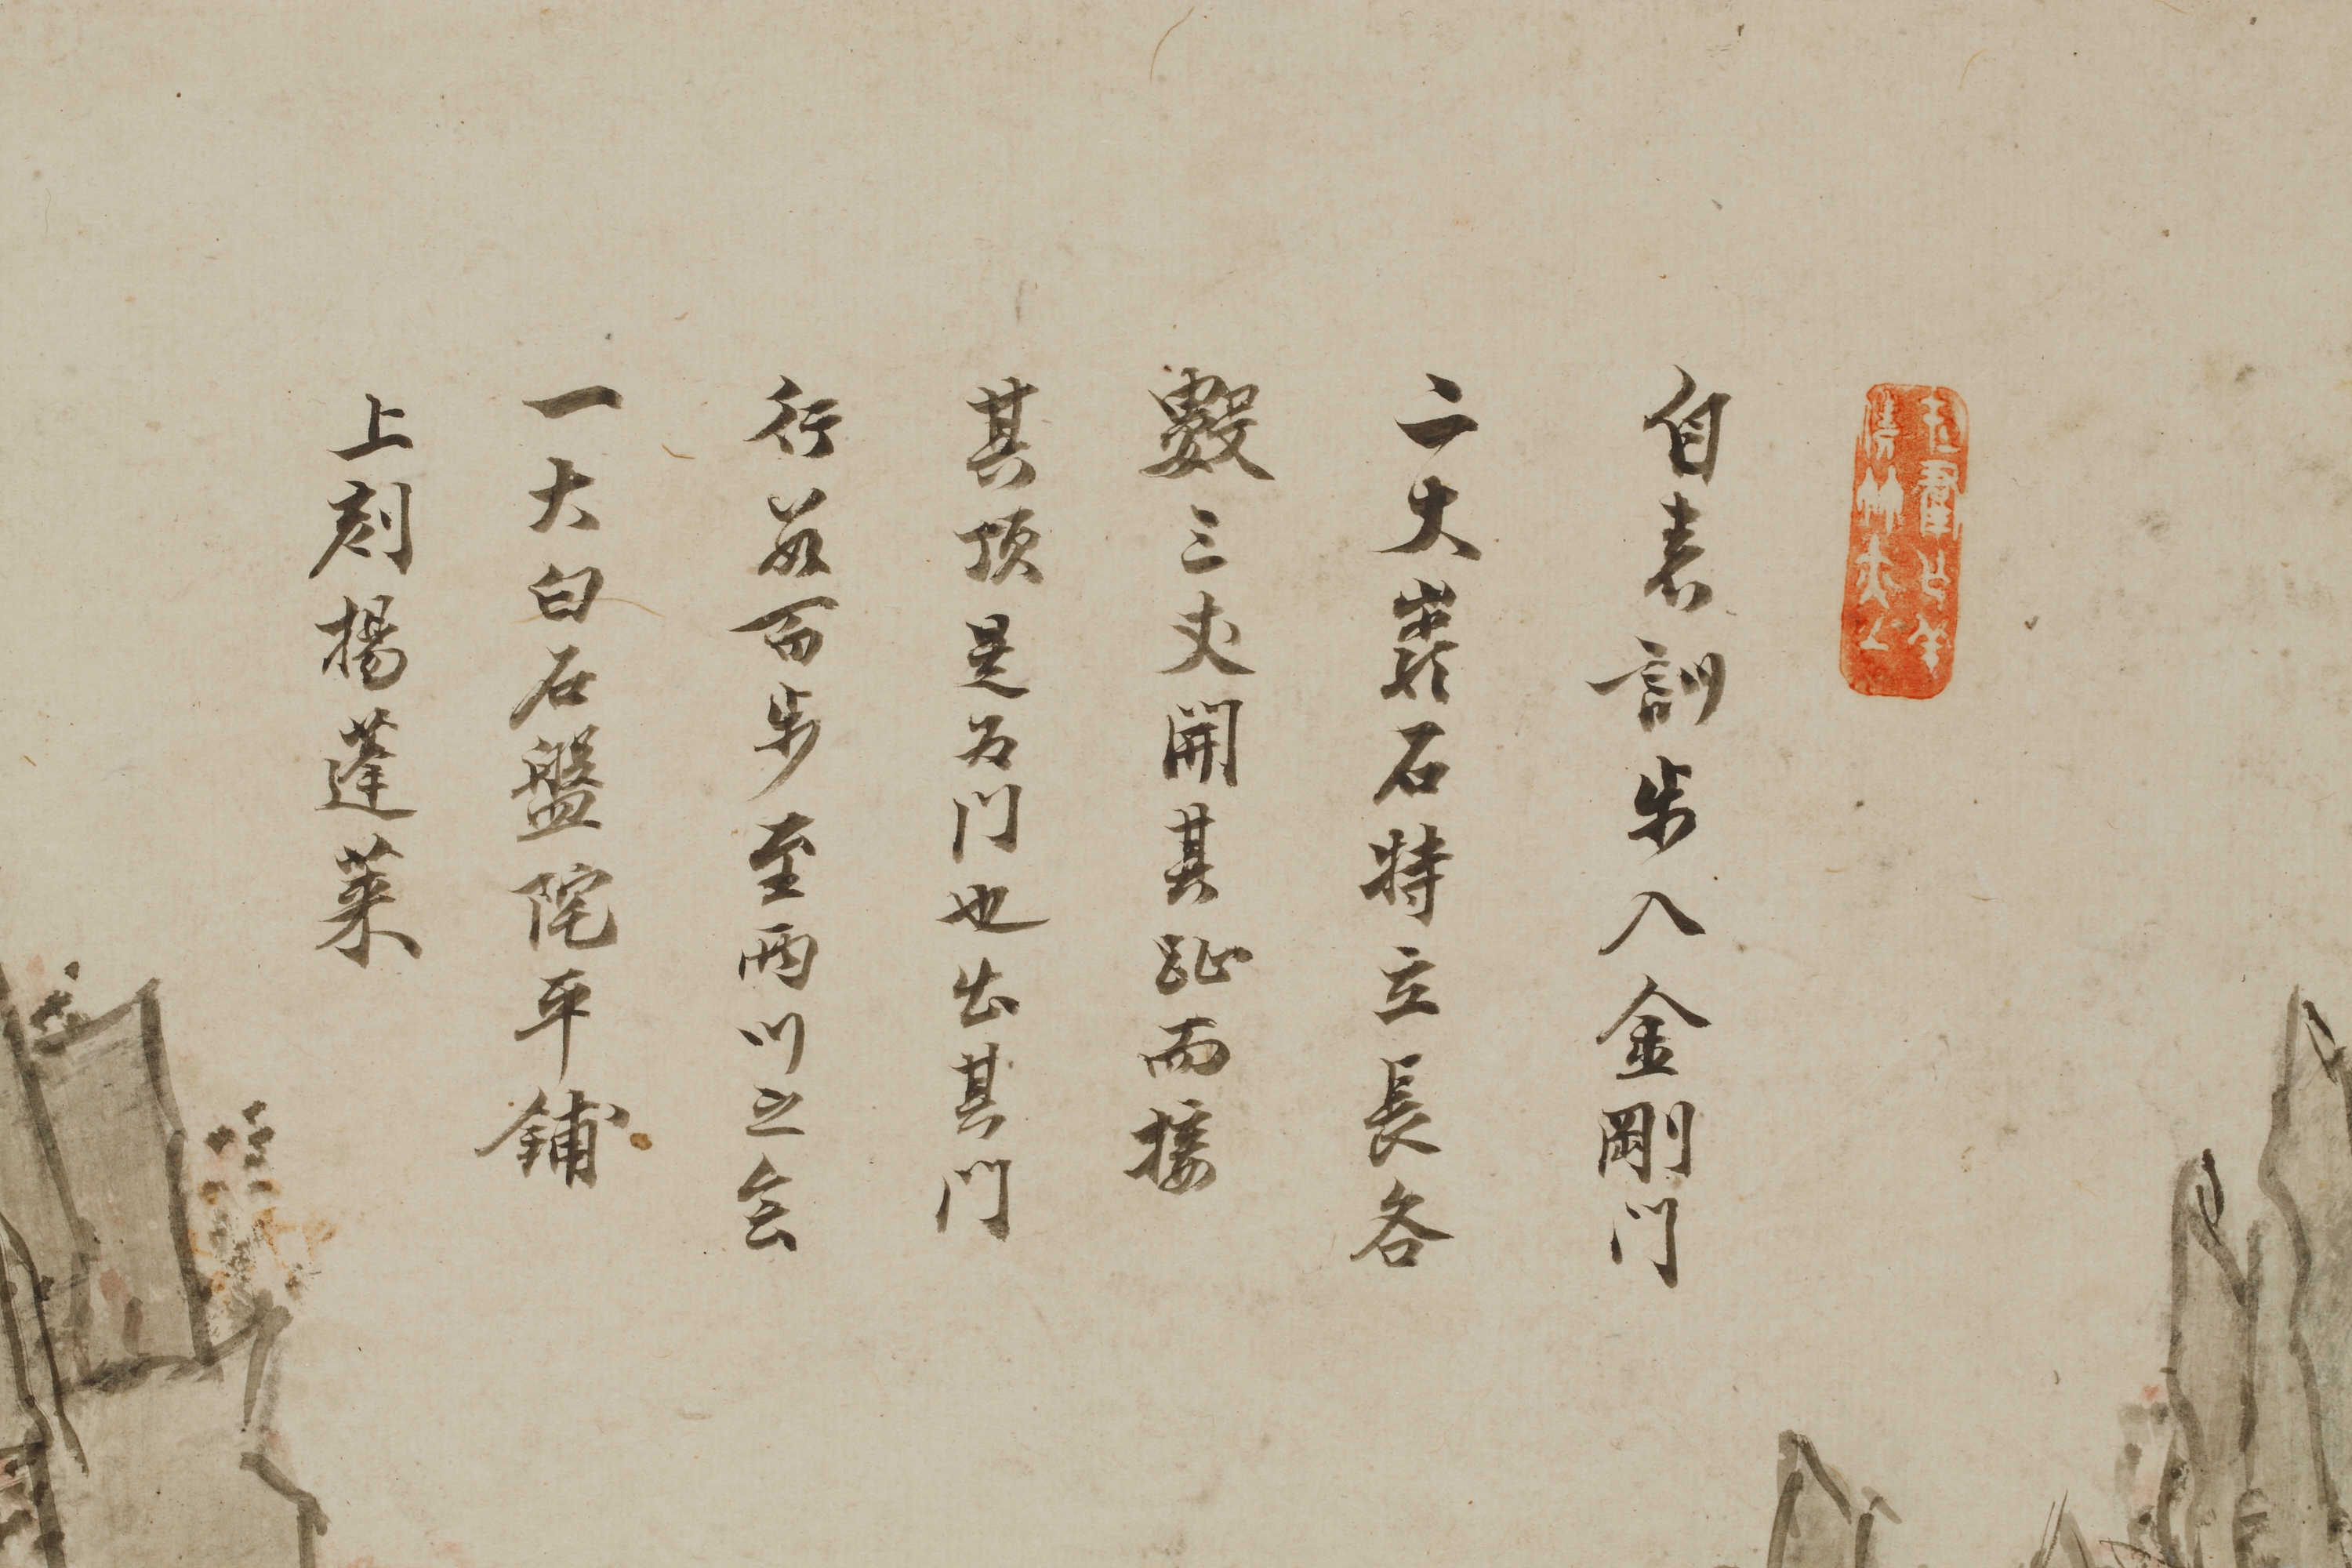 自表訓步入金剛门
二大巖石特立長各
數三丈開其趾而接
其頂是为门也出其门
行数百步至两川之会
一大白石盤陀平鋪
上刻楊蓬萊